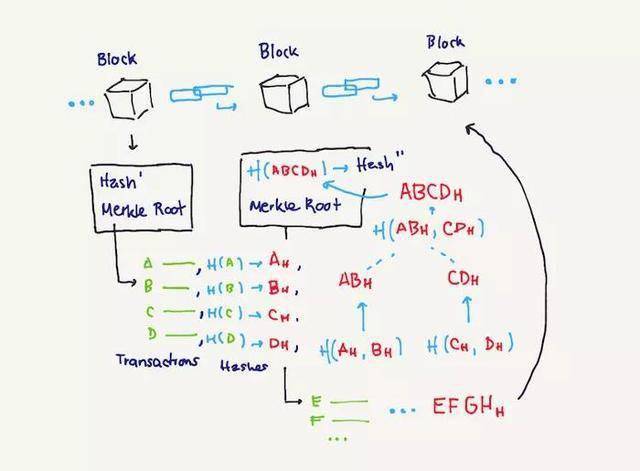 Block
Block
Block
Hash'
Merkle Root
H(ABCDH) → Hash"
Merkle Root
ABCDH
H(ABH, CDH)
ABH
CDH
H(AH, BH)
H(CH, DH)
A —, H(A) → AH,
B —, H(B) → BH,
C —, H(C) → CH,
D —, H(D) → DH,
Transactions
Hashes
E —
F —
...
... EFGHH